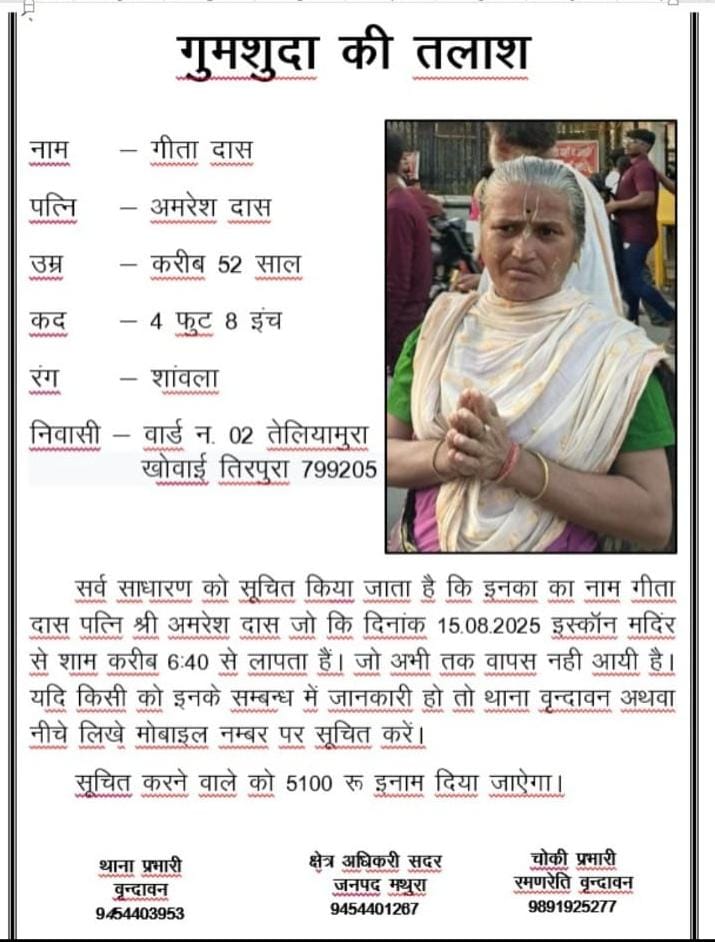 गुमशुदा की तलाश
नाम – गीता दास
पत्नि – अमरेश दास
उम्र – करीब 52 साल
कद – 4 फुट 8 इंच
रंग – शांवला
निवासी – वार्ड न. 02 तेलियामुरा
खोवाई तिरपुरा 799205
सर्व साधारण को सूचित किया जाता है कि इनका का नाम गीता
दास पत्नि श्री अमरेश दास जो कि दिनांक 15.08.2025 इस्कॉन मदिंर
से शाम करीब 6:40 से लापता हैं। जो अभी तक वापस नही आयी है।
यदि किसी को इनके सम्बन्ध में जानकारी हो तो थाना वृन्दावन अथवा
नीचे लिखे मोबाइल नम्बर पर सूचित करें।
सूचित करने वाले को 5100 रू इनाम दिया जाऐगा।
थाना प्रभारी
वृन्दावन
9454403953
क्षेत्र अधिकरी सदर
जनपद मथुरा
9454401267
चोकी प्रभारी
रमणरेति वृन्दावन
9891925277